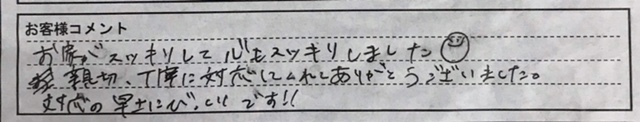 お客様コメント
お家がスッキリして心もスッキリしました
親切、丁寧に対応してくれてありがとうございました。
対応の早さにびっくりです!!